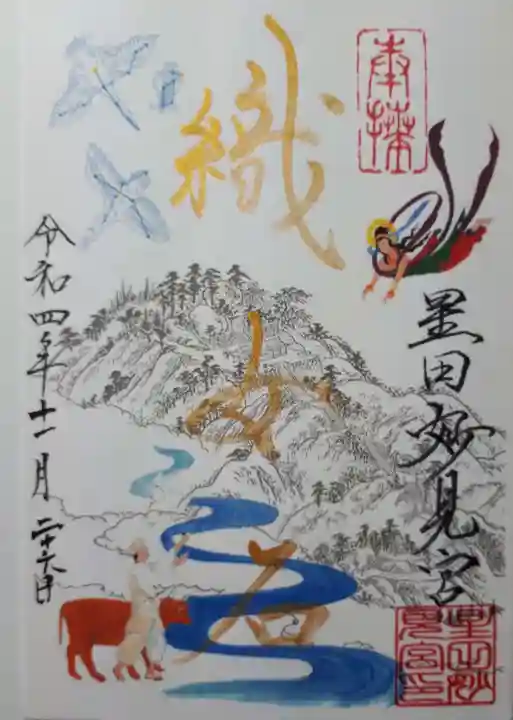 奉拝
星田妙見宮
織女石
令和四年十一月二十六日
星田妙見宮印